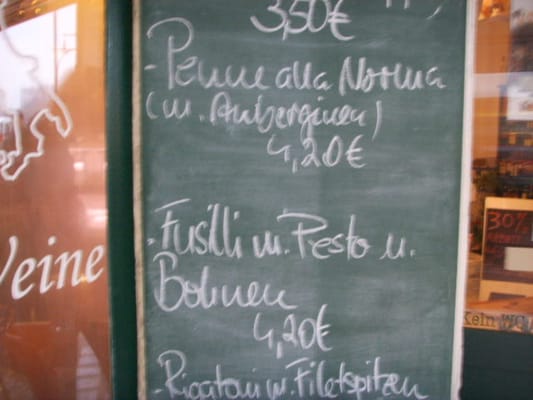 3,50€
- Penne alla Norma
(m. Auberginen)
4,20€
- Fusilli m. Pesto u.
Bohnen
4,20€
- Rigatoni m. Filetspitzen
Weine
30%
Kein WC